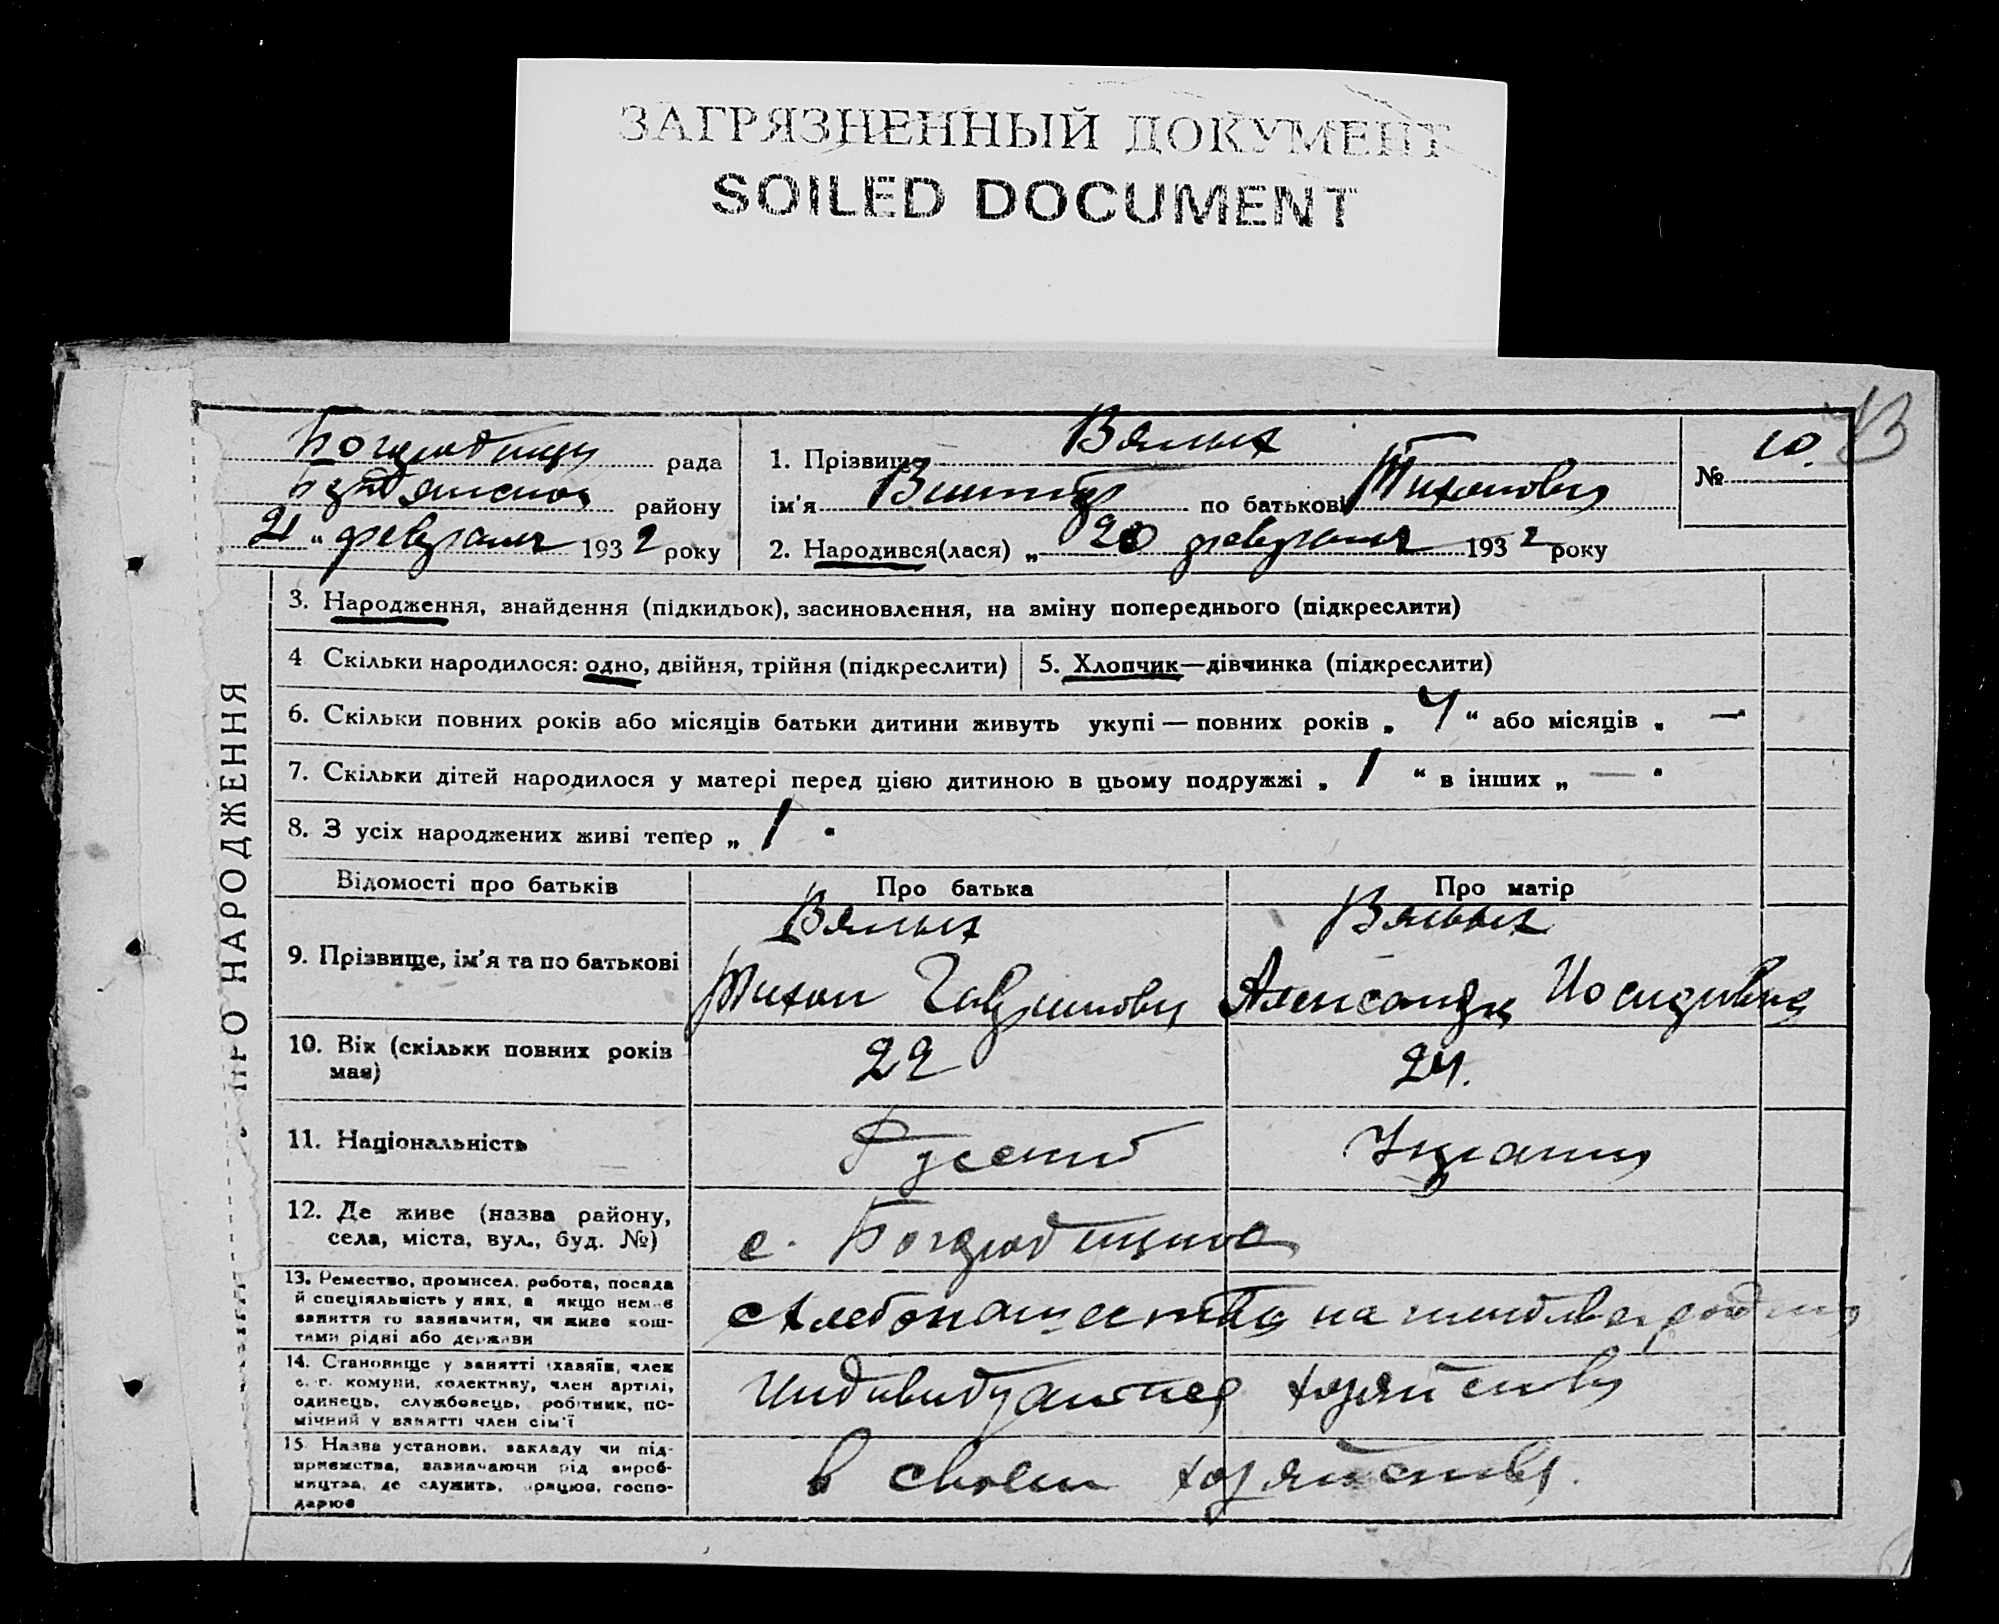 ЗАГРЯЗНЕННЫЙ ДОКУМЕНТ
SOILED DOCUMENT
рада
району
21 " февраля 1932 року
1. Прізвище Вялых
ім'я Виктор по батькові Тихонович
2. Народився(лася) „ 20 февраля 1932 року
№ 10.
ПРО НАРОДЖЕННЯ
3. Народження, знайдення (підкидьок), засиновлення, на зміну попереднього (підкреслити)
4 Скільки народилося: одно, двійня, трійня (підкреслити)
5. Хлопчик—дівчинка (підкреслити)
6. Скільки повних років або місяців батьки дитини живуть укупі — повних років „ 4 “ або місяців „ —
7. Скільки дітей народилося у матері перед цією дитиною в цьому подружжі „ 1 “ в інших „ — “
8. З усіх народжених живі тепер „ 1 “
Відомості про батьків
Про батька
Про матір
9. Прізвище, ім'я та по батькові
Вялых
Тихон Гаврилович
Вялых
Александра Иосифовна
10. Вік (скільки повних років має)
22
24.
11. Національність
Русский
Украинка
12. Де живе (назва району,
села, міста, вул., буд. №)
с.
13. Ремество, промисел, робота, посада
й спеціяльність у них, а якщо немає
заняття то зазначити, чи живе кош-
тами рідні або держави
хлебопашество на
14. Становище у занятті (хазяїн, член
с.-г. комуни, колективу, член артілі,
одинець, службовець, робітник, по-
мічний у занятті член сім'ї
хозяйство
15 Назва установи, закладу чи під-
приємства, зазначаючи рід вироб-
ництва, де служить, працює, госпо-
дарює
в своем хозяйстве.